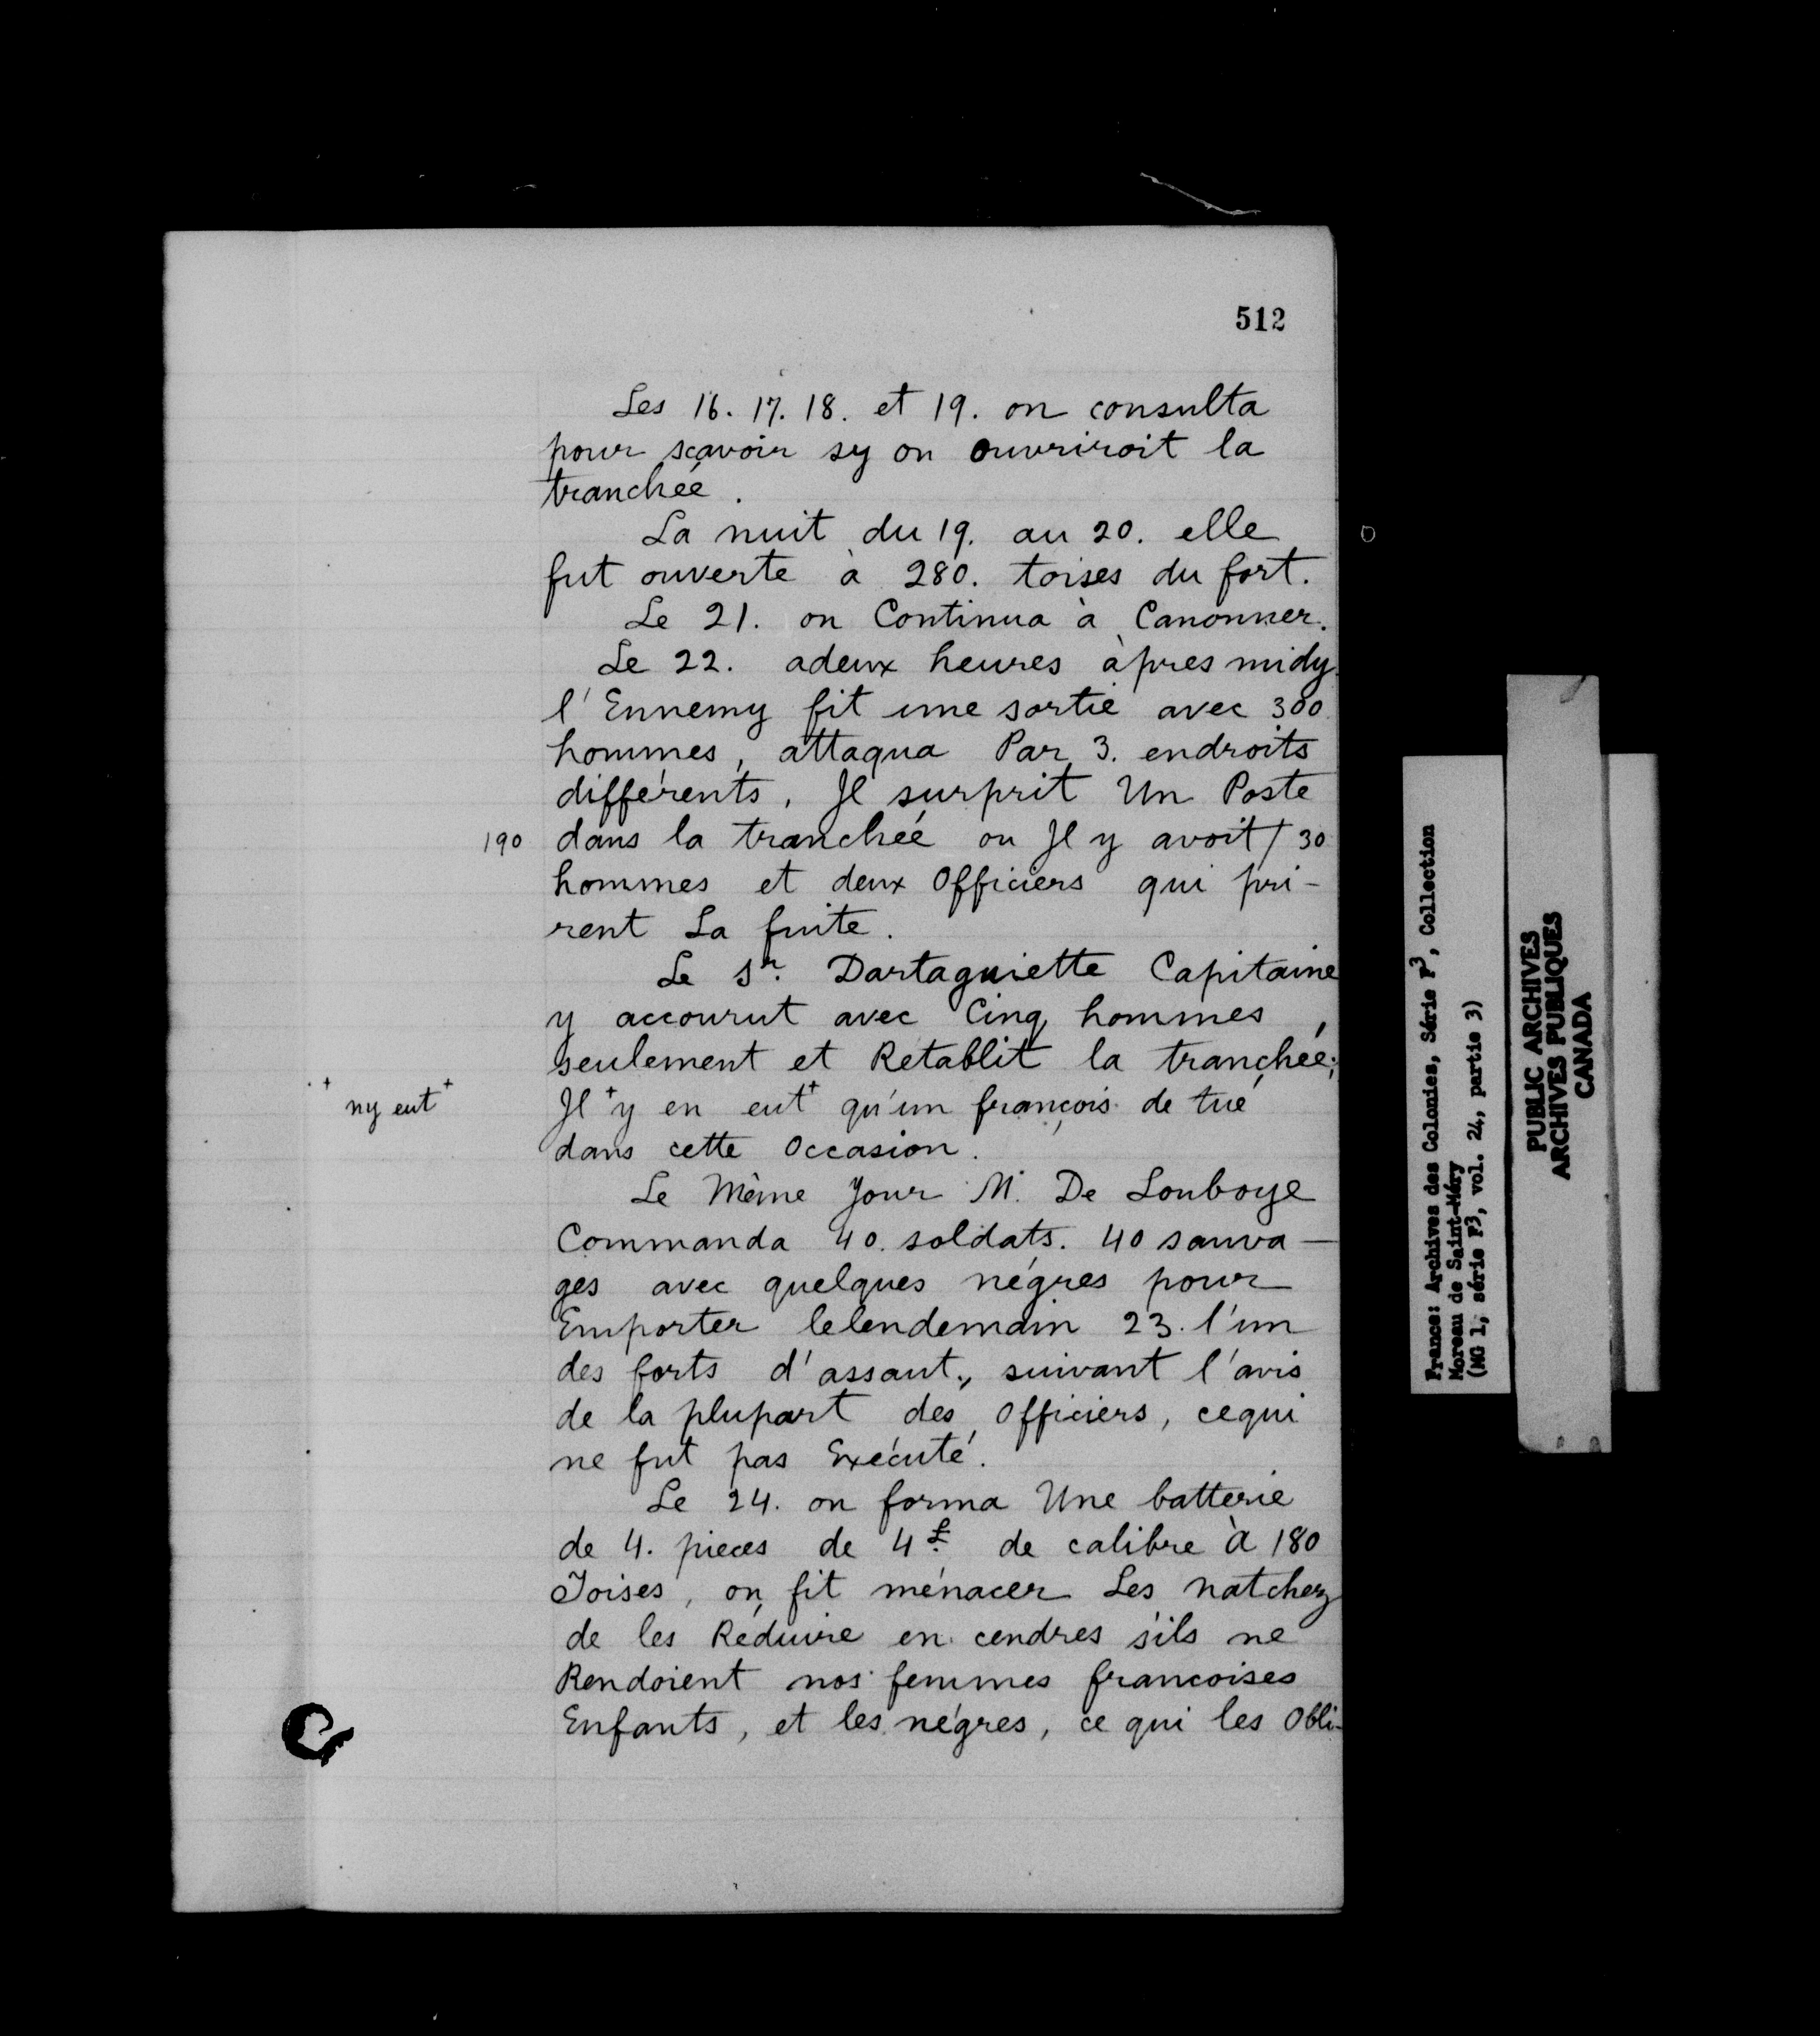 512
Les 16. 17. 18. et 19. on consulta
pour sçavoir sy on ouvriroit la
tranchéé.
La nuit du 19. au 20. elle
fut ouverte à 280. toises du fort.
Le 21. on Continua à Canonner.
Le 22. adeux heures àpres midy
l'Ennemy fit une sortie avec 300
hommes, attaqua Par 3. endroits
différents, Il surprit Un Poste
190 dans la tranchéé ou Il y avoit / 30
hommes et deux Officiers qui pri-
rent La fuite.
Le Sr. Dartaguiette Capitaine
y accourut avec Cinq hommes,
seulement et Retablit la tranchéé;
+ ny eut + Il + y en eut + qu'un françois de tué
dans cette Occasion.
Le Même Jour M. De Louboye
Commanda 40. soldats. 40 sauva-
ges avec quelques négres pour
Emporter lelendemain 23. l'un
des forts d'assaut, suivant l'avis
de la plupart des Officiers, cequi
ne fut pas Exécuté.
Le 24. on forma Une batterie
de 4. pieces de 4 £. de calibre à 180
Toises, on fit ménacer Les natchez
de les Réduire en cendres s'ils ne
Rendoient nos femmes francoises
Enfants, et les négres, ce qui les Obli-
France: Archives des Colonies, Série F3, Collection
Moreau de Saint-Méry
(MG 1, série F3, vol. 24, partie 3)
PUBLIC ARCHIVES
ARCHIVES PUBLIQUES
CANADA